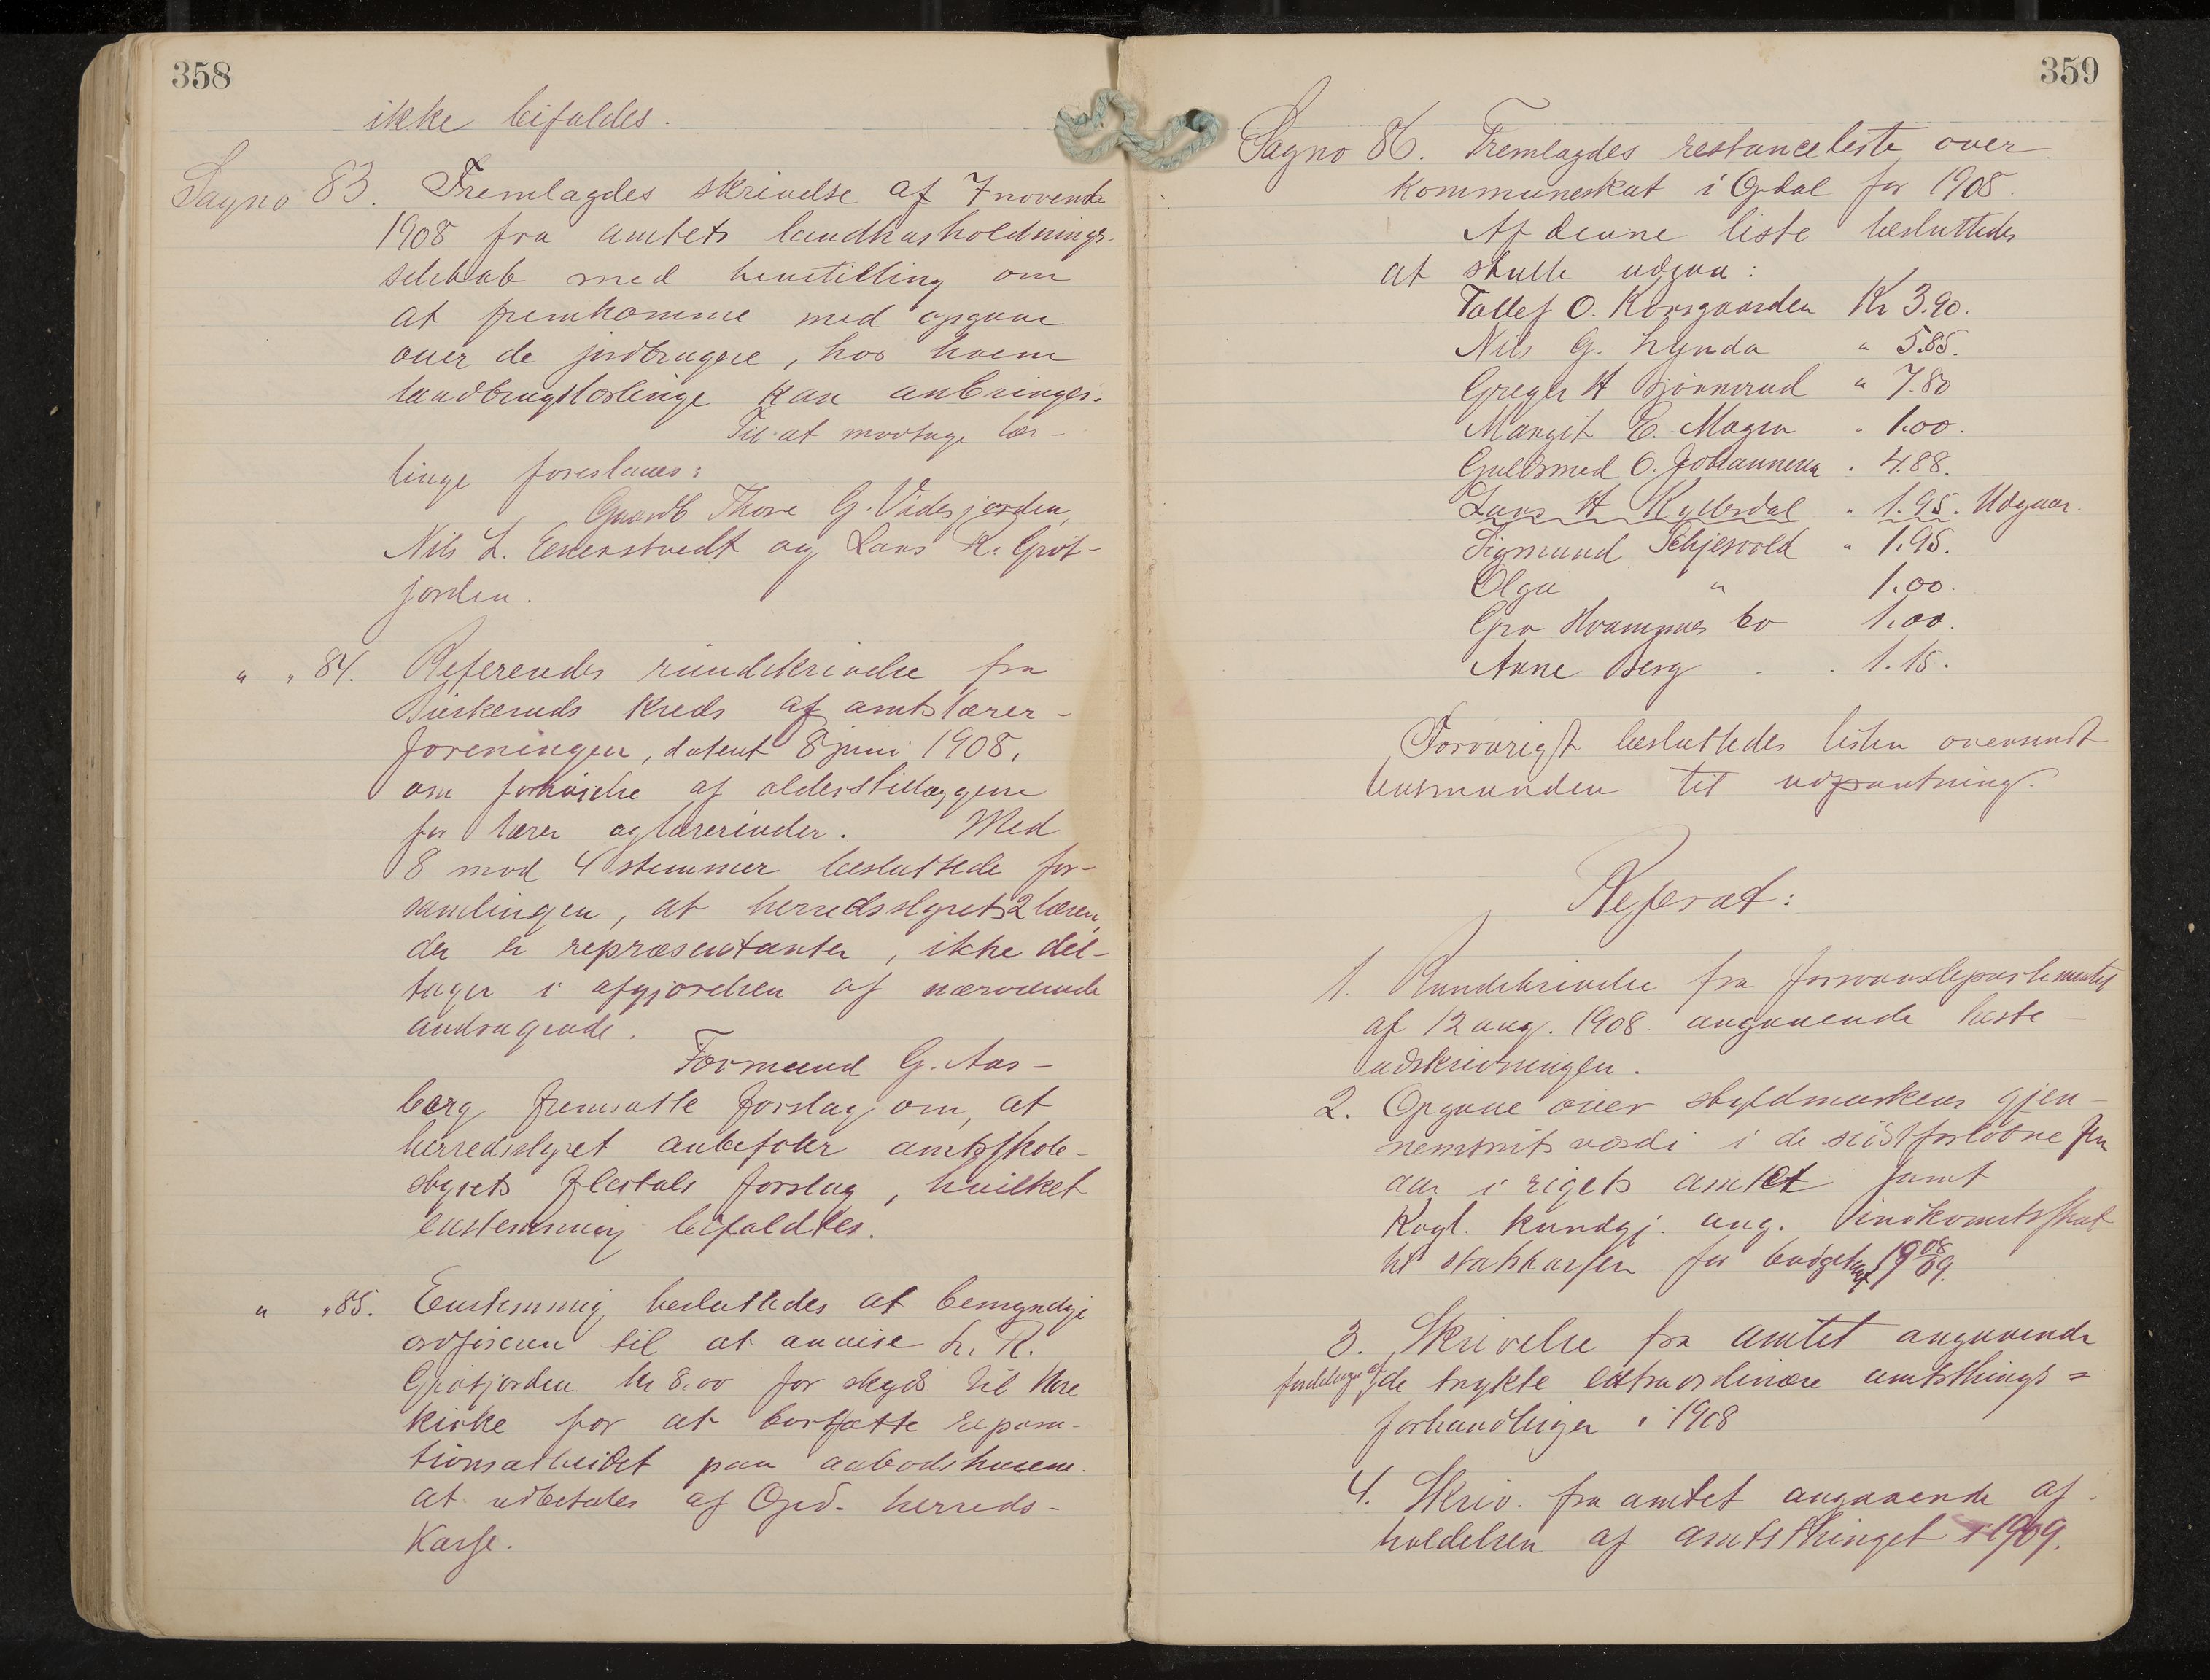 358
ikke bifaldes.
Sagno 83. Fremlagdes skrivelse af 7 novembr
1908 fra amtets landhusholdnings-
selskab med henstilling om
at fremkomme med opgave
over de jordbrugere, hos hvem
landbrugslærlinge kan anbringes.
Til at modtage lær-
linge foreslaaes:
Gaardb Thore G. Videsjorden,
Nils L. Evenstvedt og Lars R. Grøt-
jorden.
" " 84. Refereredes rundskrivelse fra
Buskeruds Kreds af amtslærer-
foreningen, datert 8 juni 1908,
om forhøielse af alderstillæggene
for lærer og lærerinder. Med
8 mod 4 stemmer besluttede for-
samlingen, at herredsstyrets 2 lærere,
der er repræsentanter, ikke del-
tager i afgjørelsen af nærværende
andragende.
Formand G. Aas-
berg fremsatte forslag om, at
herredsstyret anbefaler amtsskole-
styrets flertals forslag, hvilket
enstemmig bifaldtes.
" " 85. Enstemmig besluttedes at bemyndige
ordføreren til at anvise L. R.
Grøtjorden kr 8.00 for skyds til Nore
kirke for at bortsætte repara-
tionsarbeidet paa aabodshusene
at udbetales af Opd. herreds-
Kasse.
359
Sagno 86. Fremlagdes restanceliste over
Kommuneskat i Opdal for 1908.
Af denne liste besluttedes
at skulle udgaa:
Tollef O. Korsgaarden Kr 3.90.
Nils G. Lynda " 5.85.
Greger H Bjørnerud " 7.80
Margit E. Mogen " 1.00.
Guldsmed O. Johannesen " 4.88.
Lars H Kyllesdal " 1.95. Udgaar.
Sigmund Schjesvold " 1.95.
Olga " 1.00.
Gro Hvammens bo 1.00.
Anne Berg " 1.15.
Forøvrigt besluttedes listen oversendt
lensmanden til udpantning.
Referat:
1. Rundskrivelse fra forsvarsdepartementet
af 12 aug. 1908 angaaende heste-
udskrivningen.
2. Opgave over skyldmarkens gjen-
nemsnits værdi i de sidst forløbne fem
aar i rigets amter samt
Kngl. kundgj. ang. indkomstskat
til statskassen for budgetaar 1908/09.
3. Skrivelse fra amtet angaaende
fordelingen af de trykte extraordinære amtsthings=
forhandlinger i 1908
4. Skriv. fra amtet angaaende af-
holdelsen af amtsthinget i 1909.